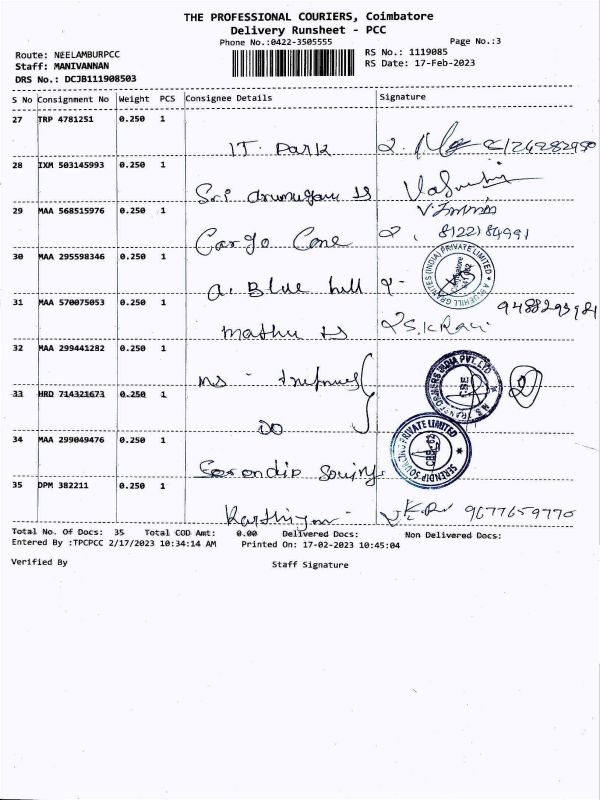 THE PROFESSIONAL COURIERS, Coimbatore
Delivery Runsheet - PCC
Phone No.:0422-3505555
Page No.:3
Route: NEELAMBURPCC
RS No.: 1119085
Staff: MANIVANNAN
RS Date: 17-Feb-2023
DRS No.: DCJB111908503
S No Consignment No Weight PCS Consignee Details Signature
27 TRP 4781251 0.250 1
IT. Park
28 IXM 503145993 0.250 1
Sri
29 MAA 568515976 0.250 1
Cargo Cone 8122184991
30 MAA 295598346 0.250 1
a. Blue hill
31 MAA 570075053 0.250 1
mathu
32 MAA 299441282 0.250 1
MS
33 HRD 714321673 0.250 1
DO
34 MAA 299049476 0.250 1
Serendip Souring
SERENDIP SOURCING PRIVATE LIMITED
35 DPM 382211 0.250 1
9677659770
Total No. Of Docs: 35 Total COD Amt: 0.00 Delivered Docs: Non Delivered Docs:
Entered By :TPCPCC 2/17/2023 10:34:14 AM Printed On: 17-02-2023 10:45:04
Verified By Staff Signature